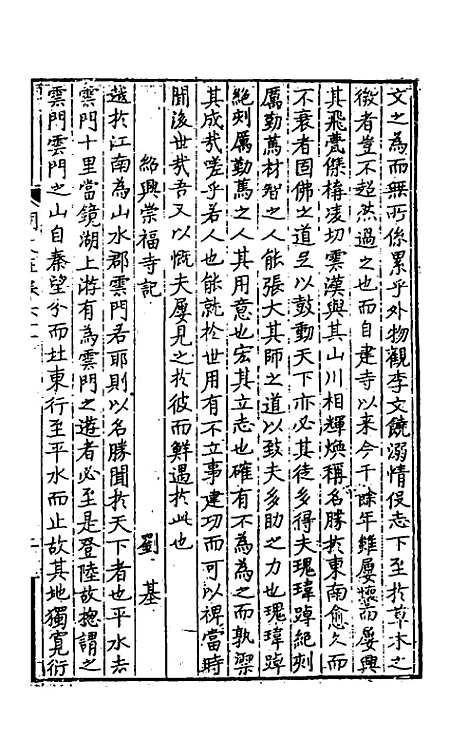 文之為而無所係累乎外物觀李文饒溺情役志下至於草木之
微者豈不超然過之也而自建寺以來今千餘年雖屢壞而屢興
其飛甍傑構凌切雲漢與其山川相輝煥稱名勝於東南愈久而
不衰者固佛之道足以鼓動天下亦必其徒多得夫瑰瑋踔絕刻
厲勤篤材智之人能張大其師之道以致夫多助之力也瑰瑋踔
絕刻厲勤篤之人其用意也宏其立志也確有不為為之而孰禦
其成哉嗟乎若人也能就於世用有不立事建功而可以裨當時
聞後世哉吾又以慨夫屢見之於彼而鮮遇於此也
紹興崇福寺記 劉基
越於江南為山水郡雲門若耶則以名勝聞於天下者也平水去
雲門十里當鏡湖上游有為雲門之遊者必至是登陸故總謂之
雲門雲門之山自秦望分而址東行至平水而止故其地獨寬衍